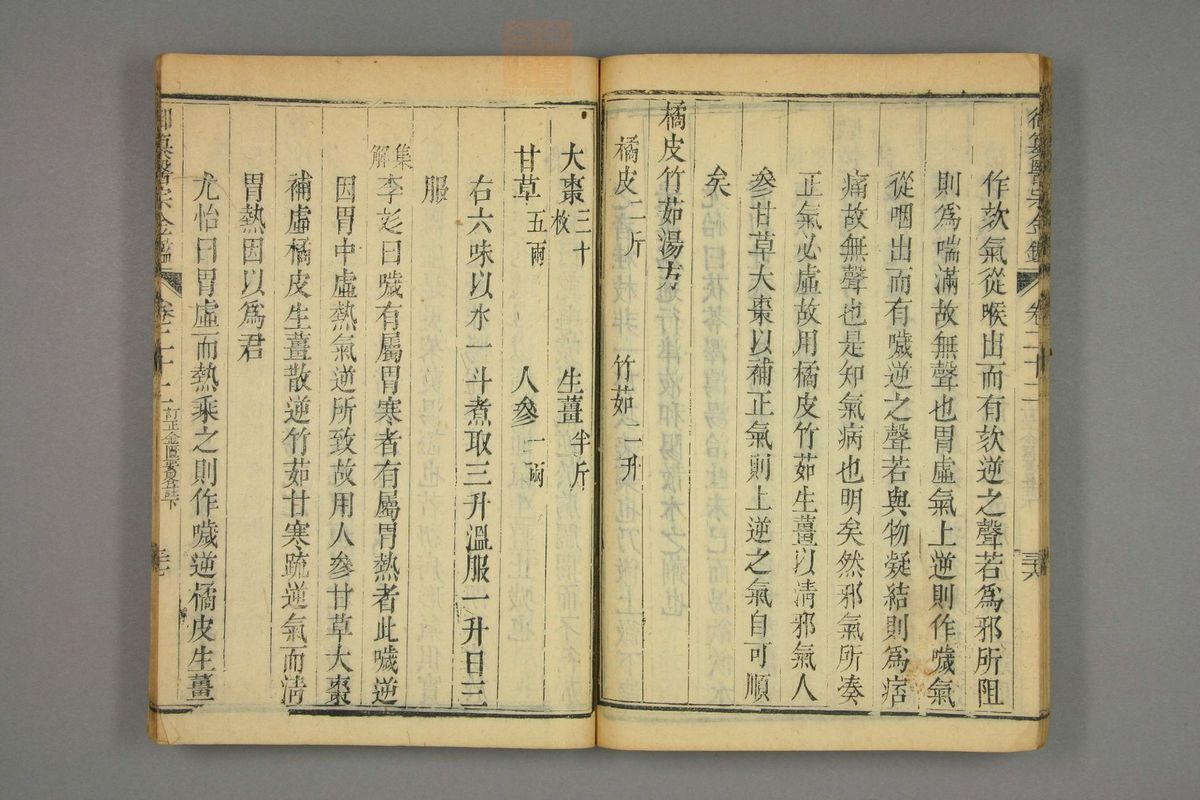 作欬氣從喉出而有欬逆之聲若爲邪所阻
則爲喘滿故無聲也胃虛氣上逆則作噦氣
從咽出而有噦逆之聲若與物凝結則爲痞
痛故無聲也是知氣病也明矣然邪氣所凑
正氣必虛故用橘皮竹茹生薑以淸邪氣人
參甘草大棗以補正氣則上逆之氣自可順
矣
橘皮竹茹湯方
橘皮二斤 竹茹二升
大棗三十枚 生薑半斤
甘草五兩 人參一兩
右六味以水一斗煮取三升溫服一升日三
服
集解李彣曰噦有屬胃寒者有屬胃熱者此噦逆
因胃中虛熱氣逆所致故用人參甘草大棗
補虛橘皮生薑散逆竹茹甘寒疏逆氣而淸
胃熱因以爲君
尤怡曰胃虛而熱乘之則作噦逆橘皮生薑
御纂醫宗金鑑 卷二十二 訂正金匱要畧註下